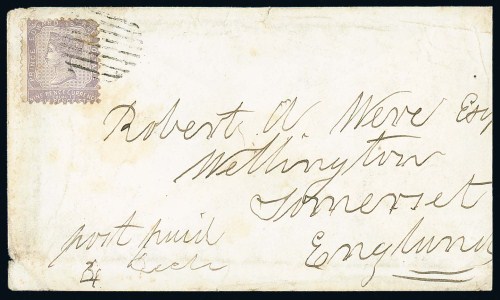 PRINCE
Robert A Were Esq
Wellington
Somerset
England
post paid